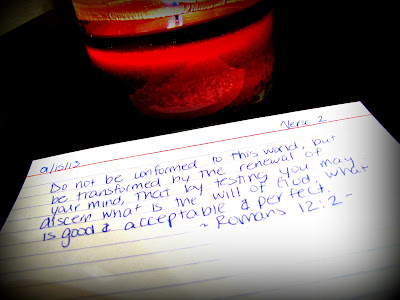 9/15/13
Verse 2
Do not be conformed to this world, but
be transformed by the renewal of
your mind, that by testing you may
discern what is the will of God, what
is good & acceptable & perfect.
~ Romans 12:2 ~